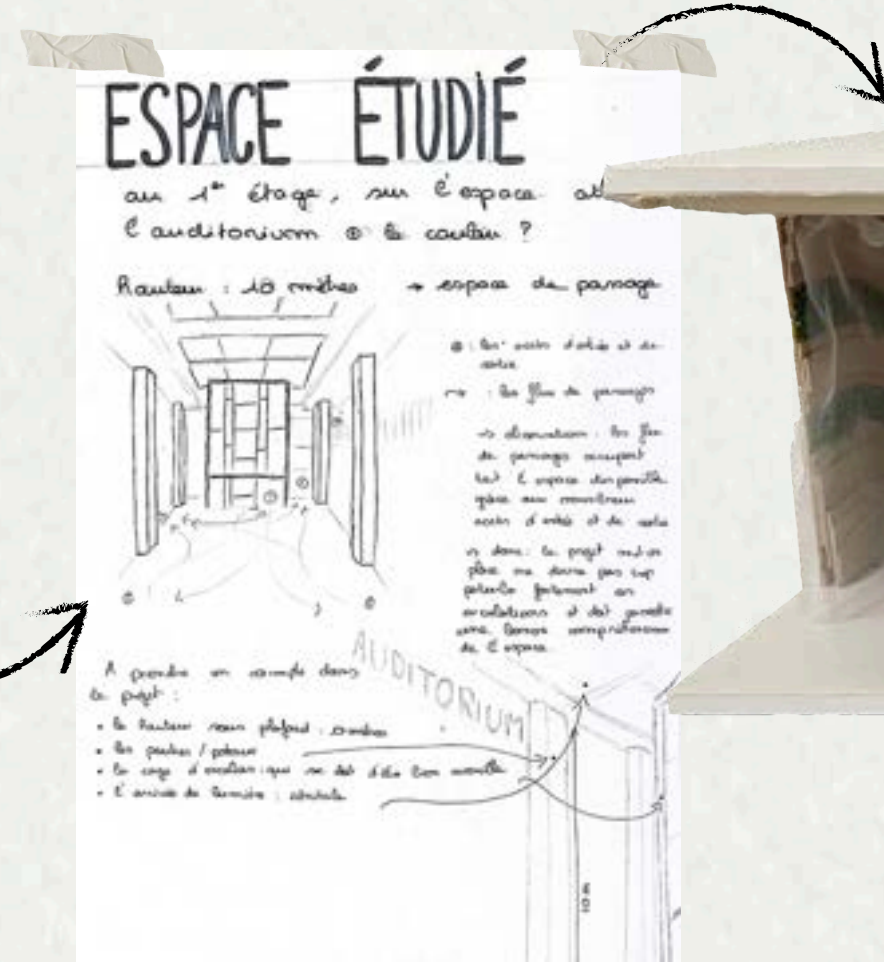 ESPACE ÉTUDIÉ
au 1er étage, sur l'espace
l'auditorium
Hauteur : 10 mètres → espace de passage
: les accès d'entrée et de
sortie
→ : les flux de passages
→ observation : les flux
de passages occupent
tout l'espace disponible
grâce aux nombreux
accès d'entrée et de sortie
→ donc : le projet mis en
place ne devra pas
fortement
circulations et doit garder
une bonne compréhension
de l'espace.
AUDITORIUM
A prendre en compte dans
le projet :
• la hauteur sous plafond :
• les poutres / poteaux
• la cage d'escalier : qui se doit d'être
• l'arrivée de lumière :
10m